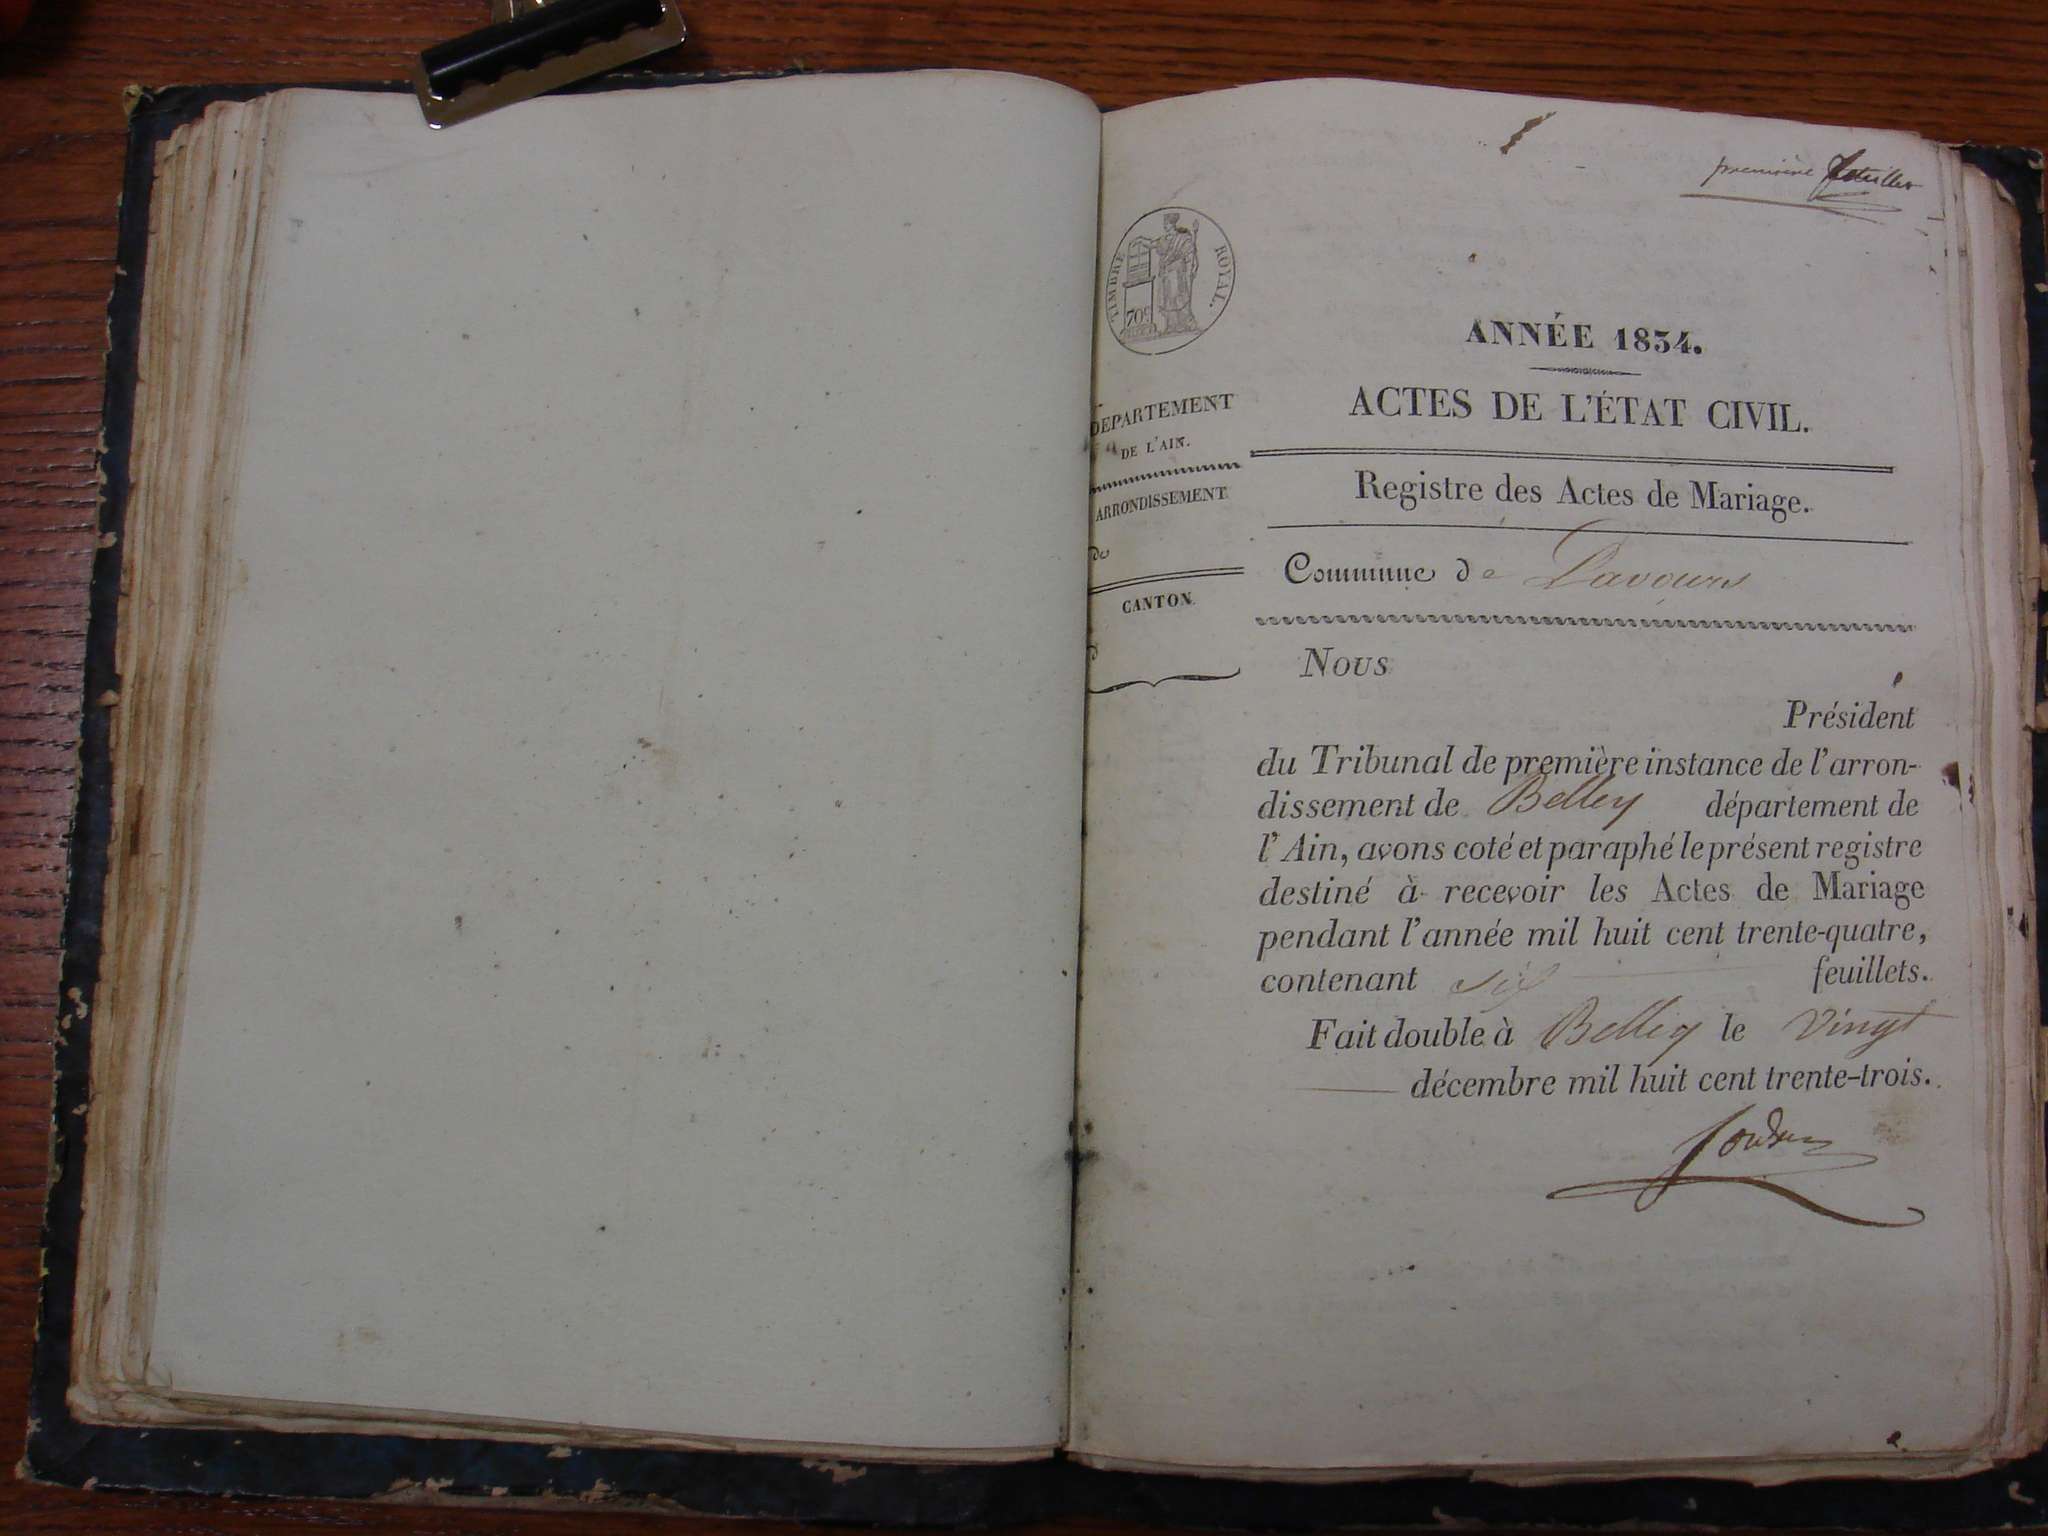 première feuillet
TIMBRE ROYAL.
70c
ANNÉE 1834.
ACTES DE L'ÉTAT CIVIL.
DÉPARTEMENT
DE L'AIN.
ARRONDISSEMENT
de
CANTON
d
Registre des Actes de Mariage.
Commune de Lavours
Nous
Président
du Tribunal de première instance de l'arron-
dissement de Belley département de
l'Ain, avons coté et paraphé le présent registre
destiné à recevoir les Actes de Mariage
pendant l'année mil huit cent trente-quatre,
contenant six feuillets.
Fait double à Belley le vingt
décembre mil huit cent trente-trois.